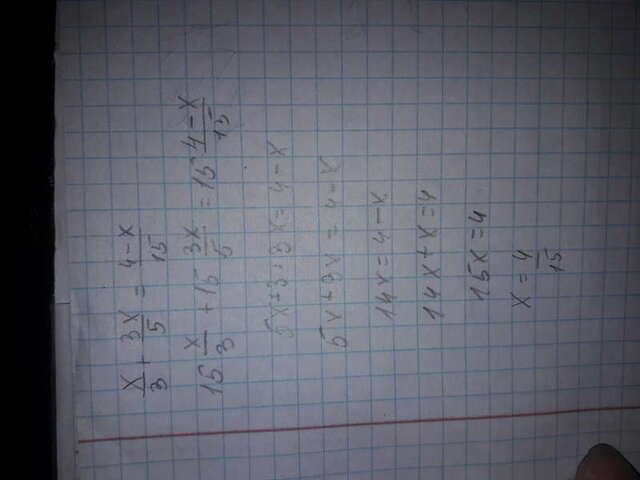 x/3 + 3x/5 = 4-x/15
15 x/3 + 15 3x/5 = 15 4-x/15
5x+3·3x=4-x
5x+9x=4-x
14x=4-x
14x+x=4
15x=4
x=4/15